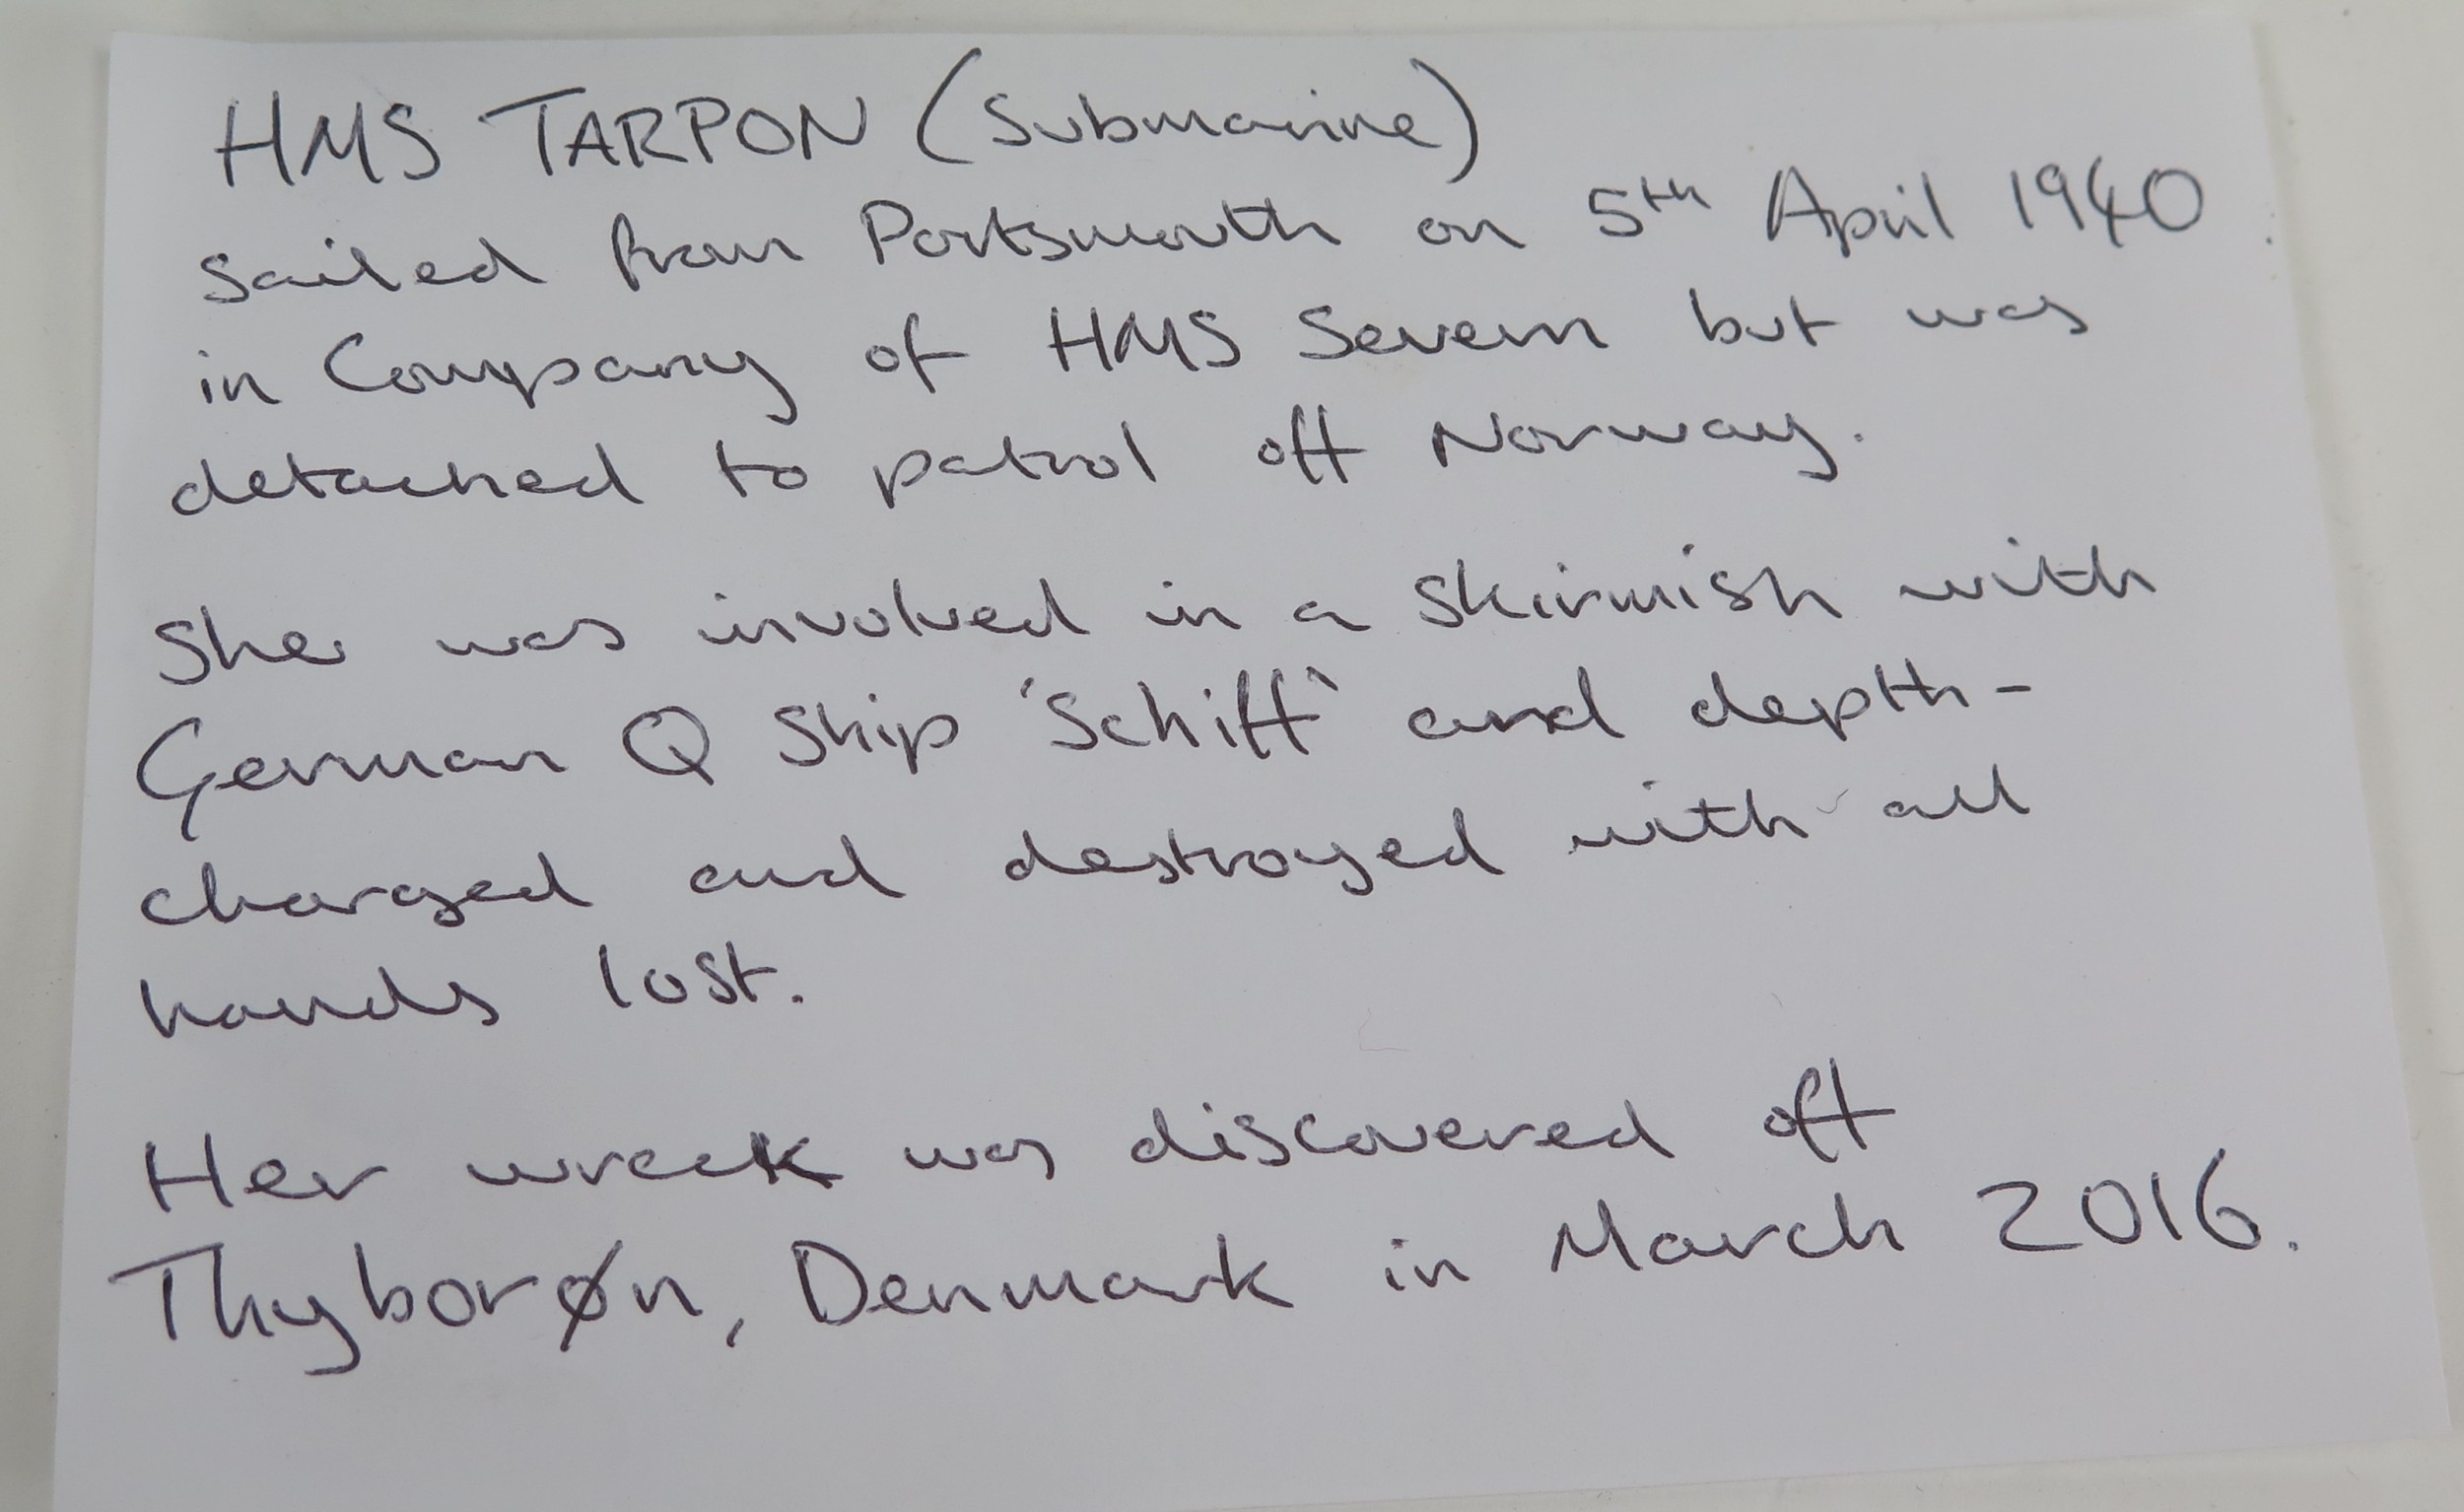 HMS TARPON (Submarine)
Sailed from Portsmouth on 5th April 1940
in Company of HMS Severn but was
detached to patrol off Norway.
She was involved in a Skirmish with
German Q Ship 'Schiff' and depth-
charged and destroyed with all
hands lost.
Her wreck was discovered off
Thyborøn, Denmark in March 2016.